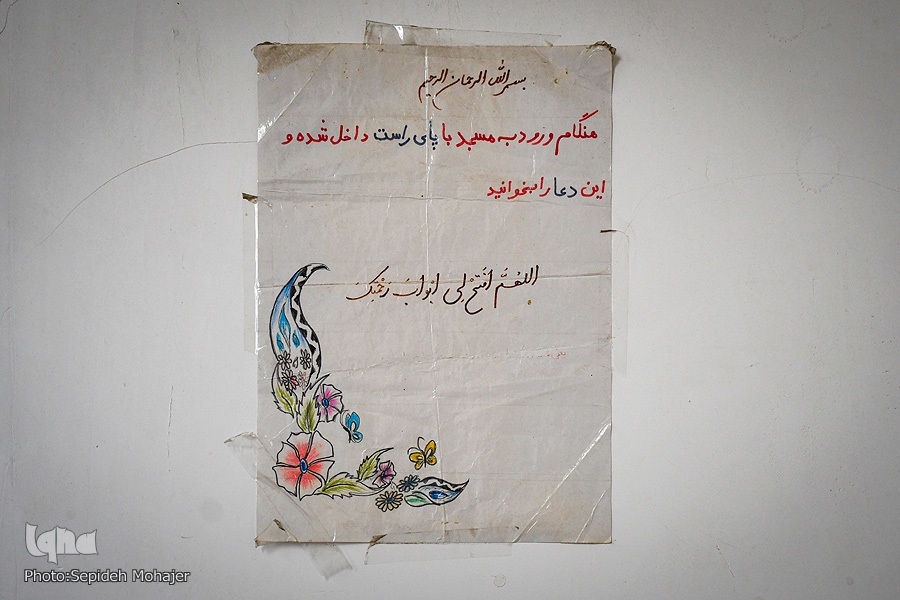 بسم الله الرحمان الرحیم
هنگام ورود به مسجد با پای راست داخل شده و
این دعا را بخوانید
اللهُمَّ افْتَحْ لِی ابْوابَ رَحْمَتِکَ
Iqna
Photo:Sepideh Mohajer